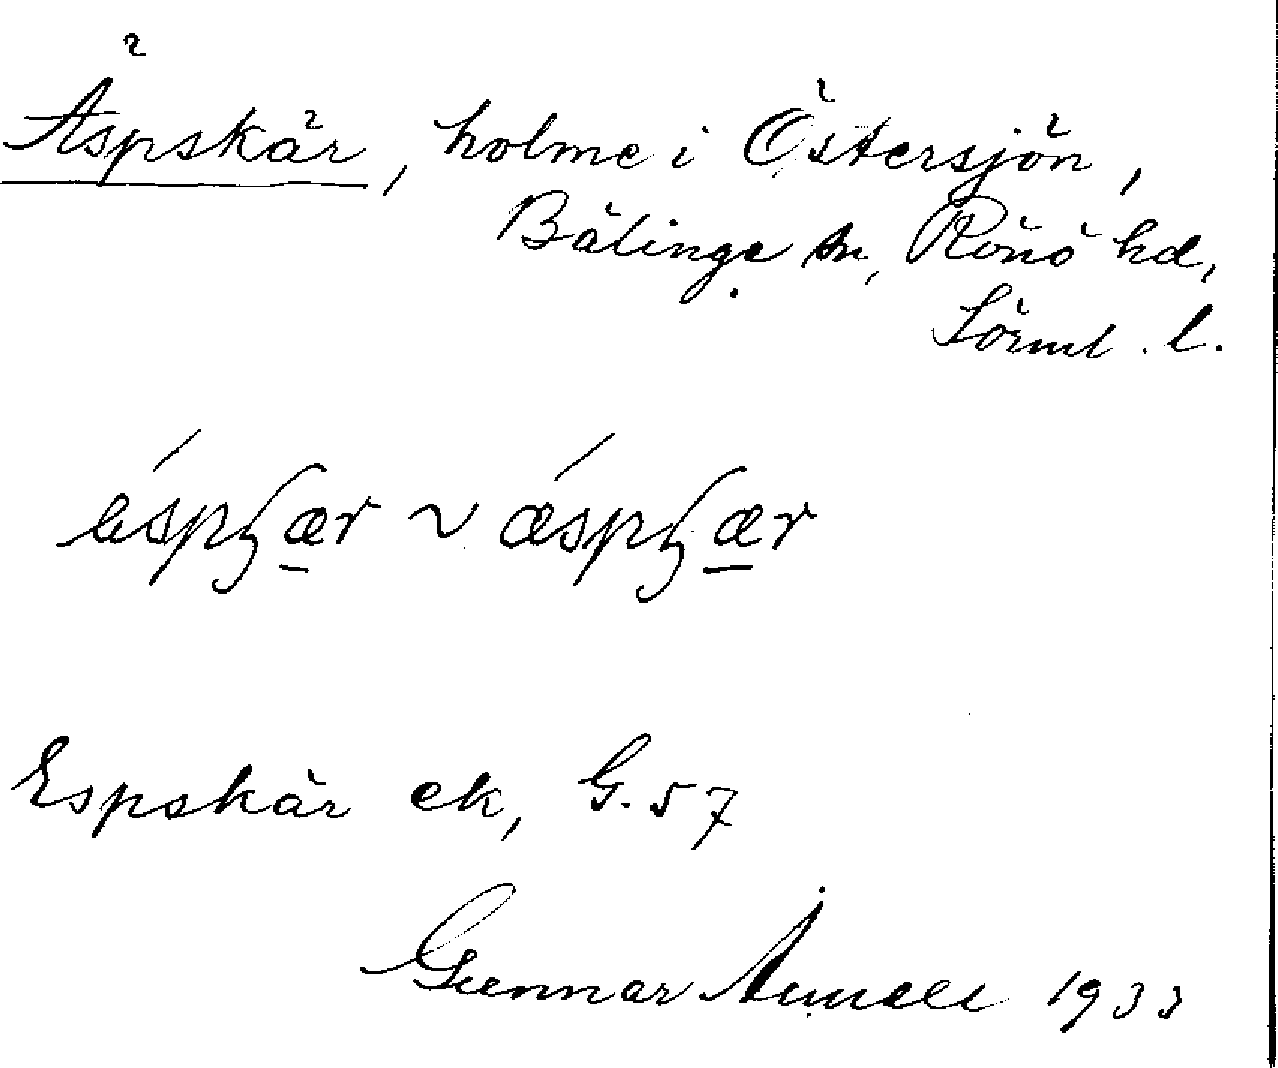 Äspskär, holme i Östersjön,
Bälinge sn, Rönö hd,
Sörml. l.
éspʂæ̱r ~ ǽspʂæ̱r
Espskär ek, G. 57
Gunnar 1933